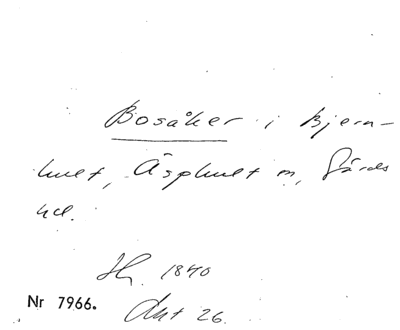 Bosåker i Bjern-
hult, Äsphult sn, Gärds
hd.
Hf. 1840
Nr 7966.
Akt 26.